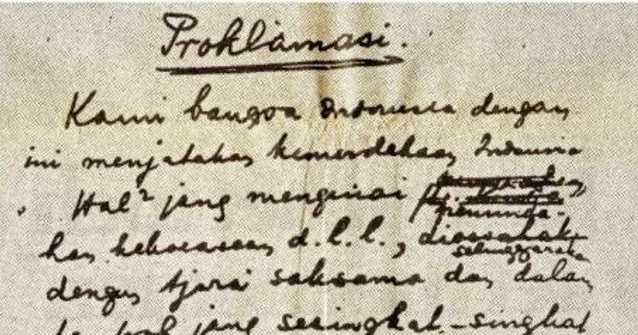 Proklamasi.
Kami bangsa Indonesia dengan
ini menjatakan kemerdekaan Indonesia
Hal² jang mengenai
peminda-
han kekoeasaan d.l.l., dioesahak
diselenggarakan
dengan tjara saksama dan dalam
jang sesingkat-singkat